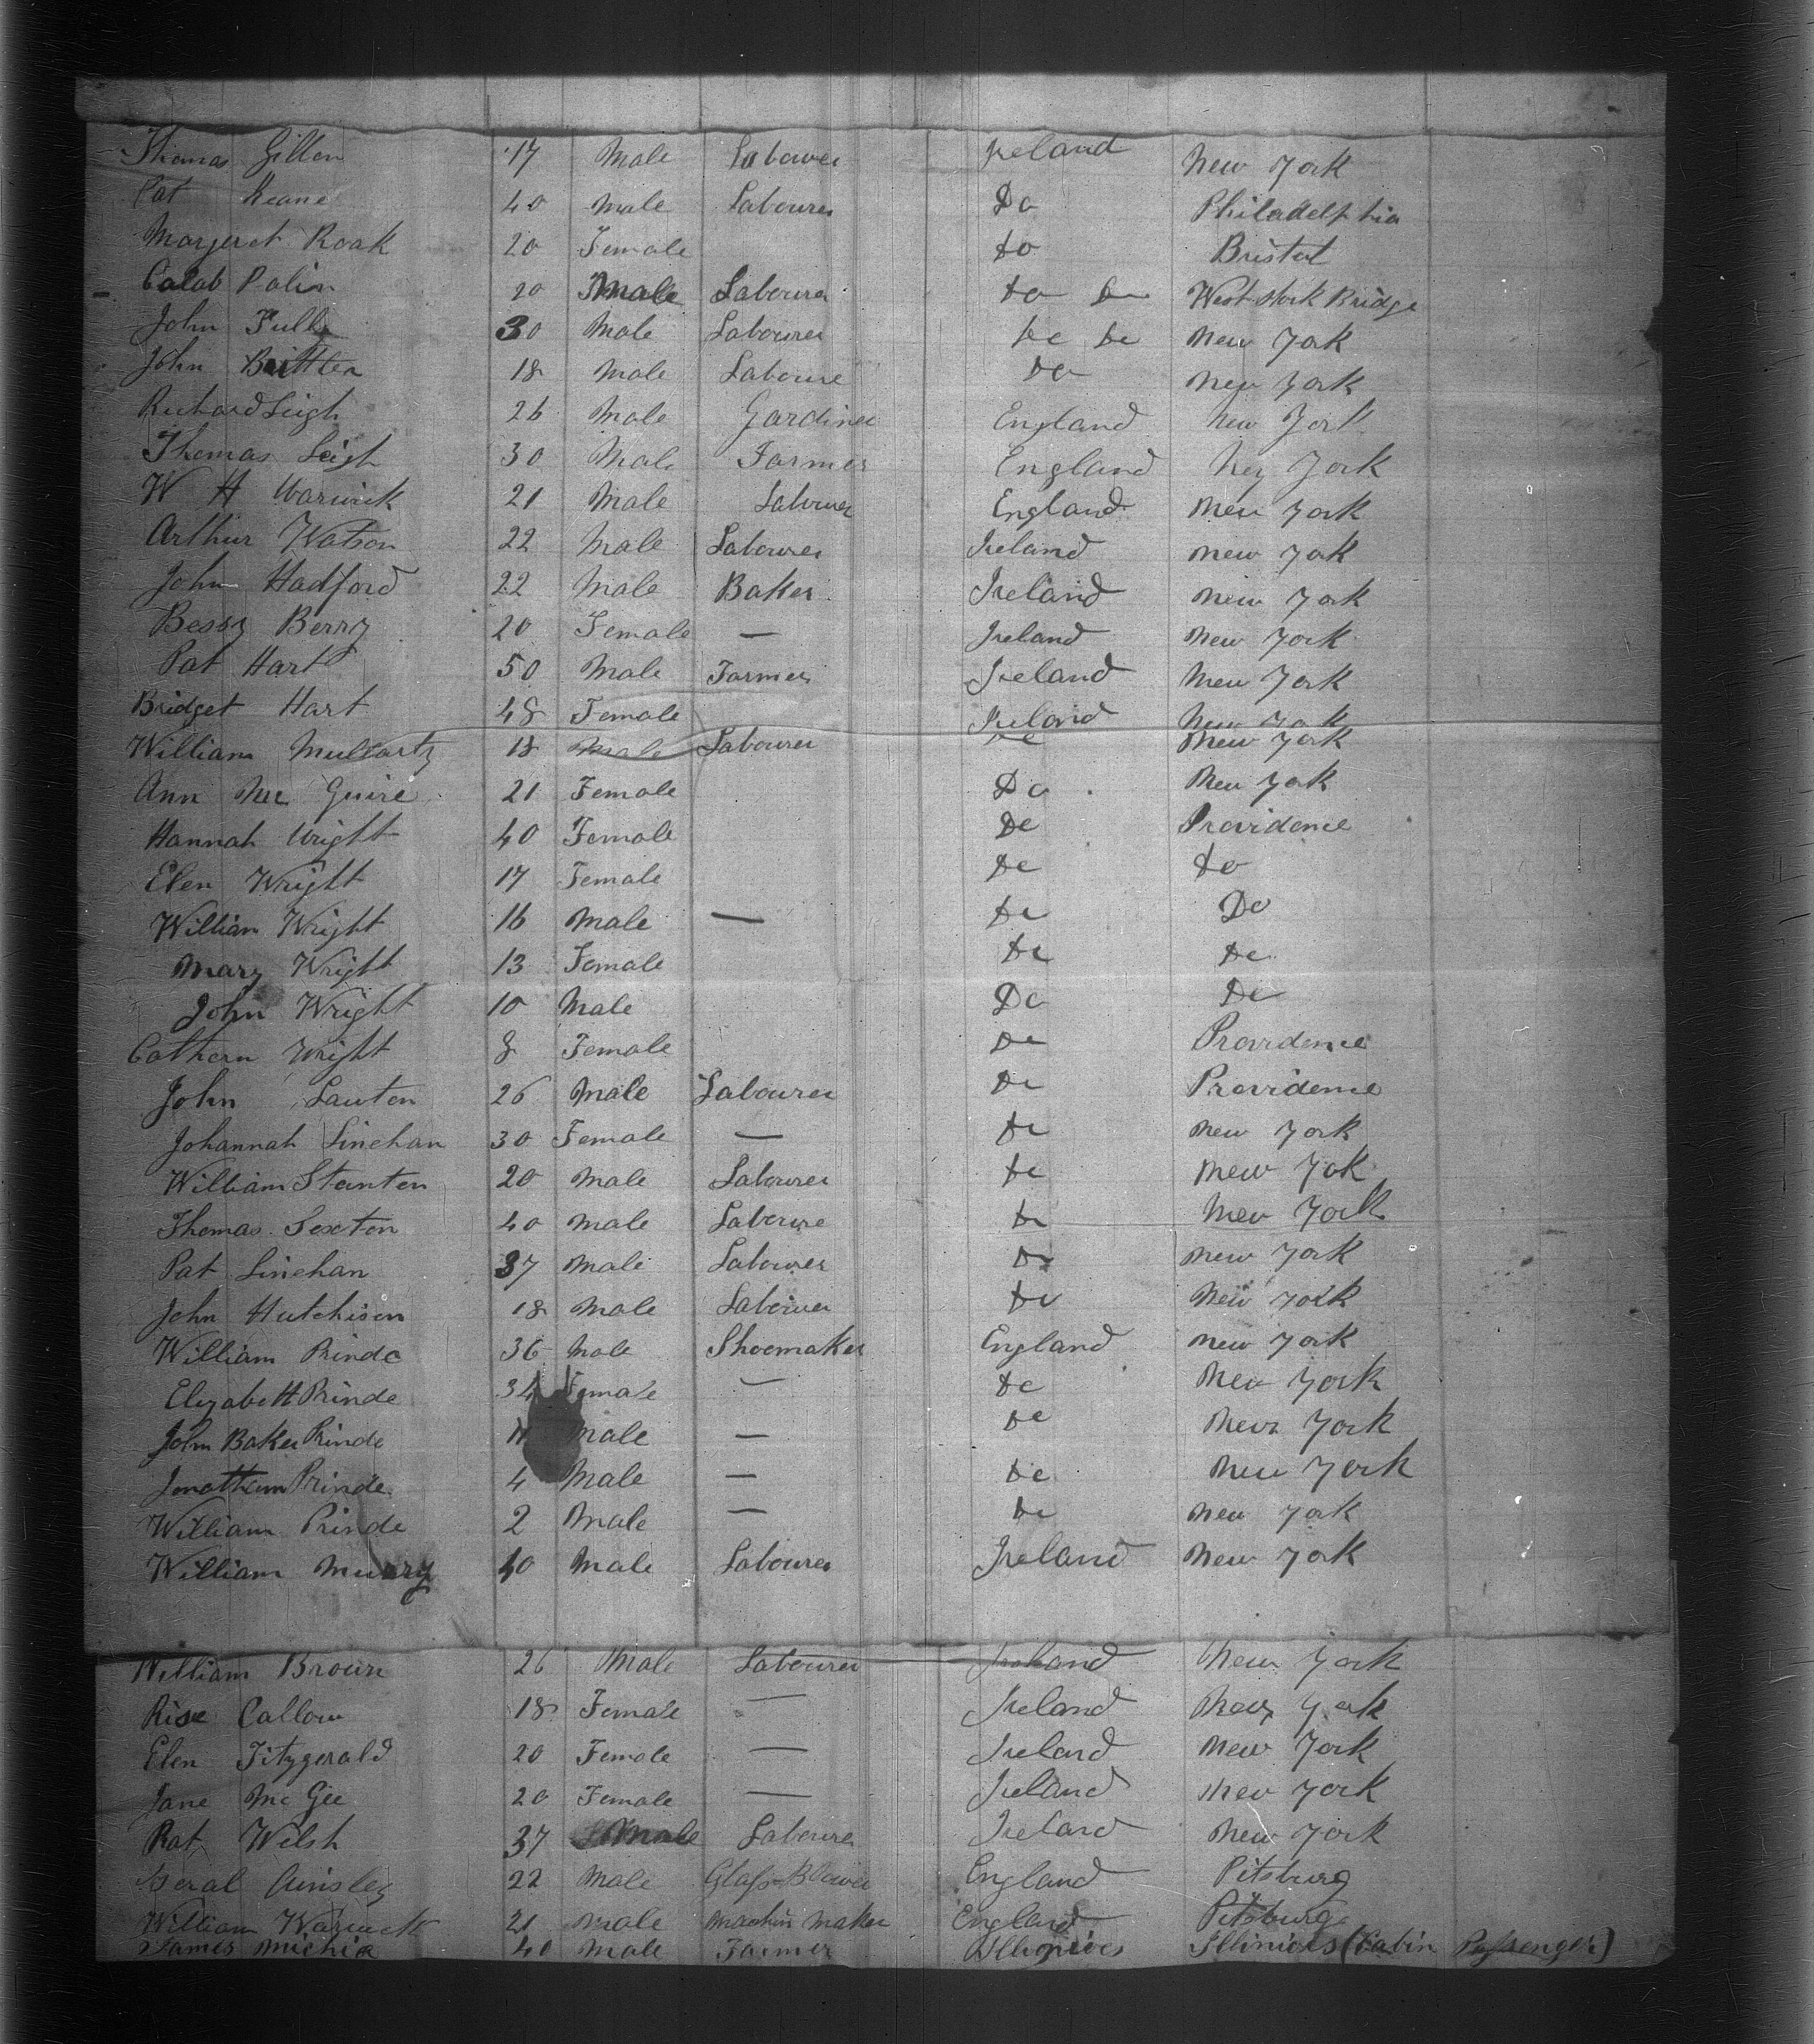 Thomas Gillon 17 Male Labourer Ireland New York
Pat Keane 40 Male Labourer Do Philadelphia
Margeret Roak 20 Female Do Bristol
Calab Palin 20 Male Labourer Do Do West stock Bridge
John Fully 30 Male Labourer Do Do New York
John Britten 18 Male Laboure Do New York
Richard Leigh 26 Male Gardiner England New York
Thomas Leigh 30 Male Farmer England New York
W H Warwick 21 Male Labourer England New York
Arthur Watson 22 Male Labourer Ireland New York
John Hadford 22 Male Baker Ireland New York
Bessy Berry 20 Female — Ireland New York
Pat Hart 50 Male Farmer Ireland New York
Bridget Hart 48 Female Ireland New York
William Mullarty 18 Male Labourer Do New York
Ann Mc Guire 21 Female Do New York
Hannah Wright 40 Female Do Providence
Elen Wright 17 Female Do Do
William Wright 16 Male — Do Do
Mary Wright 13 Female Do Do
John Wright 10 Male Do Do
Cathern Wright 8 Female Do Providence
John Lauton 26 Male Labourer Do Providence
Johannah Linehan 30 Female — Do New York
William Stanton 20 Male Labourer Do New York
Thomas Sexton 40 Male Laboure Do New York
Pat Linehan 37 Male Labourer Do New York
John Hutchison 18 Male Labourer Do New York
William Prinde 36 Male Shoemaker England New York
Elizabeth Prinde 34 Female — Do New York
John Baker Prinde Male — Do New York
Jonatham Prinde 4 Male — Do New York
William Prinde 2 Male — Do New York
William Murry 40 Male Labourer Ireland New York
William Brown 26 Male Labourer Ireland New York
Rise Callow 18 Female — Ireland New York
Elen Fitzgerald 20 Female — Ireland New York
Jane Mc Gee 20 Female — Ireland New York
Pat Welsh 37 Male Labourer Ireland New York
Ainsley 22 Male Glass Blower England Pitsburg
William Warwick 21 Male Machin Maker England Pitsburg
James Michie 40 Male Farmer Illinois Illiniois (Cabin Passenger)